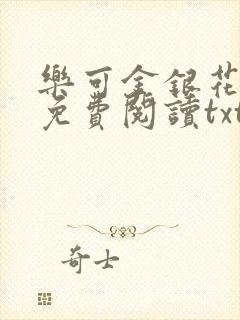 樂可金銀花
免費閱讀txt
奇士